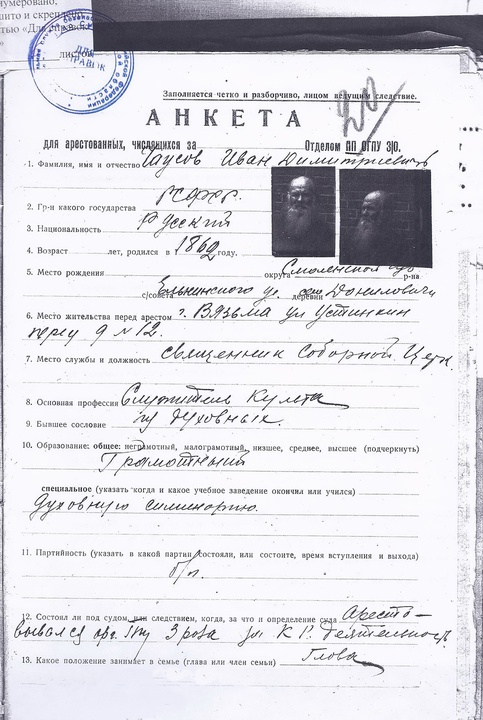 нумеровано.
шито и скреплено
тью «Для
листов
ДЛЯ СПРАВОК
Заполняется четко и разборчиво, лицом ведущим следствие.
20
АНКЕТА
для арестованных, числящихся за Отделом ПП ОГПУ З|О.
1. Фамилия, имя и отчество Таусов Иван Димитриевич
2. Гр-н какого государства РСФСР.
3. Национальность Русский
4. Возраст лет, родился в 1862 году.
5. Место рождения округа Смоленской р-на
с/совета Ельнинского у. деревни село Данилович
6. Место жительства перед арестом г. Вязьма ул Устинкин
переу д № 12.
7. Место службы и должность священник Соборной Церк.
8. Основная профессия Служитель Культа
9. Бывшее сословие из духовных.
10. Образование: общее: неграмотный, малограмотный, низшее, среднее, высшее (подчеркнуть)
Грамотный
специальное (указать когда и какое учебное заведение окончил или учился)
Духовную симинорию.
11. Партийность (указать в какой партии состояли, или состоите, время вступления и выхода)
б/п.
12. Состоял ли под судом, или следствием, когда, за что и определение суда Аресто–
вывался орг. Гпу 3 роза за К Р. деятельность.
13. Какое положение занимает в семье (глава или член семьи) Глова